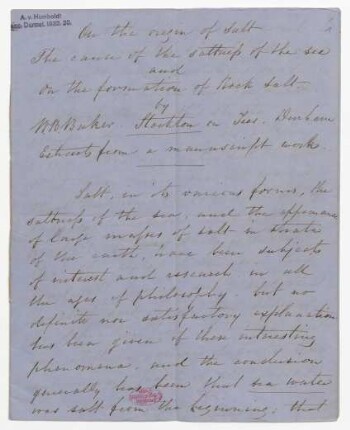 A. v. Humboldt
On the origin of Salt
The cause of the saltness of the sea
and
On the formation of Rock Salt
by
W B Baker Stockton on Tees. Durham
Extracts from a manuscript work.
Salt, in its various forms, the
saltness of the sea, and the appearance
of large masses of salt in strata
of the earth, have been subjects
of interest and research in all
the ages of philosophy. but no
definite nor satisfactory explanation
has been given of these interesting
phenomena. and the conclusion
generally has been that sea water
was salt from the beginning; that